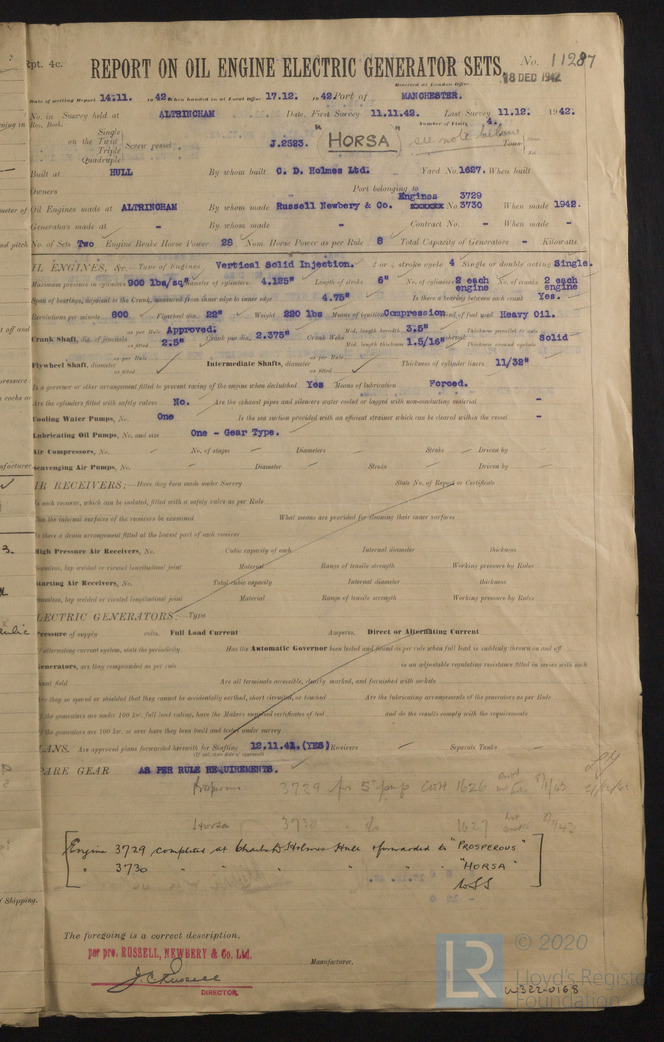 Rpt. 4c.
REPORT ON OIL ENGINE ELECTRIC GENERATOR SETS.
No. 11287
Received at London Office 18 DEC 1942
Date of writing Report 14.11. 1942 When handed in at Local Office 17.12. 1942 Port of MANCHESTER.
No. in Reg. Book. Survey held at ALTRINCHAM Date, First Survey 11.11.42. Last Survey 11.12. 1942.
Number of Visits 4.
Single on the Twin Triple Quadruple Screw vessel J.2523. "HORSA" see note below Tons
Built at HULL By whom built C. D. Holmes Ltd. Yard No. 1627. When built
Owners Port belonging to
Oil Engines made at ALTRINCHAM By whom made Russell Newbery & Co. Engines No. 3729 3730 When made 1942.
Generators made at - By whom made - Contract No. - When made -
No. of Sets Two Engine Brake Horse Power 28 Nom. Horse Power as per Rule 8 Total Capacity of Generators - Kilowatts.
OIL ENGINES, &c. Type of Engines Vertical Solid Injection. 2 or 4 stroke cycle 4 Single or double acting Single.
Maximum pressure in cylinders 900 lbs/sq" Diameter of cylinders 4.125" Length of stroke 6" No. of cylinders 2 each engine No. of cranks 2 each engine
Span of bearings, adjacent to the Crank, measured from inner edge to inner edge 4.75" Is there a bearing between each crank Yes.
Revolutions per minute 800 Flywheel dia. 22" Weight 220 lbs Means of ignition Compression Kind of fuel used Heavy Oil.
Crank Shaft, dia. of journals as per Rule Approved. as fitted 2.5" Crank pin dia. 2.375" Crank Webs Mid. length breadth 3.5" Mid. length thickness 1.5/16" Thickness parallel to axis Thickness around eyehole shrunk Solid
Flywheel Shaft, diameter as per Rule as fitted Intermediate Shafts, diameter as per Rule as fitted Thickness of cylinder liners 11/32"
Is a governor or other arrangement fitted to prevent racing of the engine when declutched Yes Means of lubrication Forced.
Are the cylinders fitted with safety valves No. Are the exhaust pipes and silencers water cooled or lagged with non-conducting material -
Cooling Water Pumps, No. One Is the sea suction provided with an efficient strainer which can be cleared within the vessel -
Lubricating Oil Pumps, No. and size One - Gear Type.
Air Compressors, No. No. of stages Diameters Stroke Driven by
Scavenging Air Pumps, No. Diameter Stroke Driven by
AIR RECEIVERS:- Have they been made under Survey State No. of Report or Certificate
Is each receiver, which can be isolated, fitted with a safety valve as per Rule
Can the internal surfaces of the receivers be examined What means are provided for cleaning their inner surfaces
Is there a drain arrangement fitted at the lowest part of each receiver
High Pressure Air Receivers, No. Cubic capacity of each Internal diameter thickness
Seamless, lap welded or riveted longitudinal joint Material Range of tensile strength Working pressure by Rules
Starting Air Receivers, No. Total cubic capacity Internal diameter thickness
Seamless, lap welded or riveted longitudinal joint Material Range of tensile strength Working pressure by Rules
ELECTRIC GENERATORS:- Type
Pressure of supply volts. Full Load Current Amperes. Direct or Alternating Current
If alternating current system, state the periodicity Has the Automatic Governor been tested and found as per rule when full load is suddenly thrown on and off
Generators, are they compounded as per rule is an adjustable regulating resistance fitted in series with each
shunt field Are all terminals accessible, clearly marked, and furnished with sockets
Are they so spaced or shielded that they cannot be accidentally earthed, short circuited, or touched Are the lubricating arrangements of the generators as per Rule
If the generators are under 100 kw. full load rating, have the Makers supplied certificates of test and do the results comply with the requirements
If the generators are 100 kw. or over have they been built and tested under survey
PLANS. Are approved plans forwarded herewith for Shafting 12.11.41.(YES) Receivers Separate Tanks
SPARE GEAR AS PER RULE REQUIREMENTS.
Prosperous 3729 for 1626
Horsa 3730 do 1627
[Engine 3729 completed at Charles D Holmes Hull & forwarded to "PROSPEROUS"
" 3730 " " " " " "HORSA"]
The foregoing is a correct description,
per pro. RUSSELL, NEWBERY & Co. Ltd.
Manufacturer.
DIRECTOR.
LR © 2020
Lloyd's Register
Foundation
W322-0168